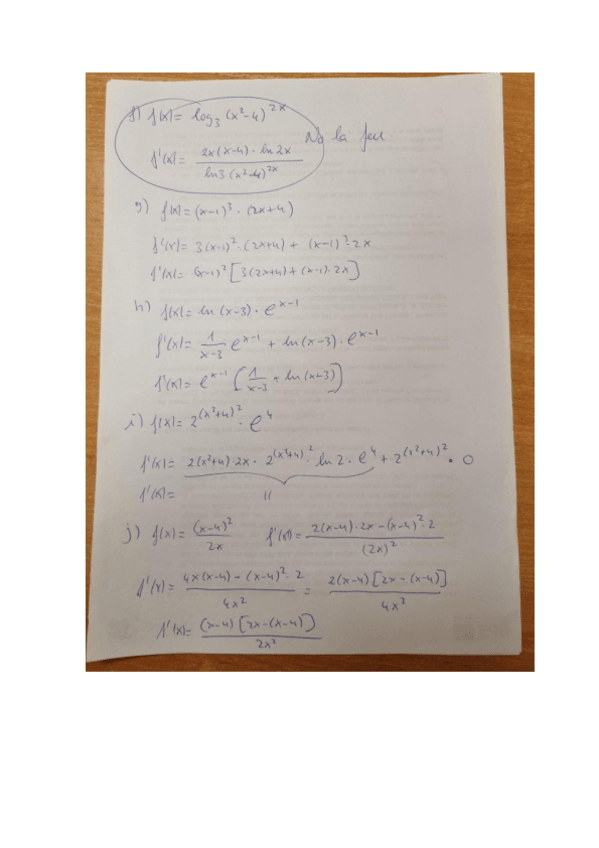 f) f(x) = log₃ (x²-4)^2x
No la feu
f'(x) = 2x(x-4) · ln 2x / ln 3 (x²-4)^2x
g) f(x) = (x-1)³ · (2x+4)
f'(x) = 3(x-1)² · (2x+4) + (x-1)³ · 2x
f'(x) = (x-1)² [3(2x+4) + (x-1) · 2x]
h) f(x) = ln (x-3) · e^x-1
f'(x) = 1/x-3 e^x-1 + ln (x-3) · e^x-1
f'(x) = e^x-1 (1/x-3 + ln (x-3))
i) f(x) = 2^(x²+4)² · e⁴
f'(x) = 2(x²+4) · 2x · 2^(x²+4)² · ln 2 · e⁴ + 2^(x²+4)² · 0
f'(x) = "
j) f(x) = (x-4)² / 2x f'(x) = 2(x-4) · 2x - (x-4)² · 2 / (2x)²
f'(x) = 4x(x-4) - (x-4)² · 2 / 4x² = 2(x-4) [2x - (x-4)] / 4x²
f'(x) = (x-4) [2x - (x-4)] / 2x²